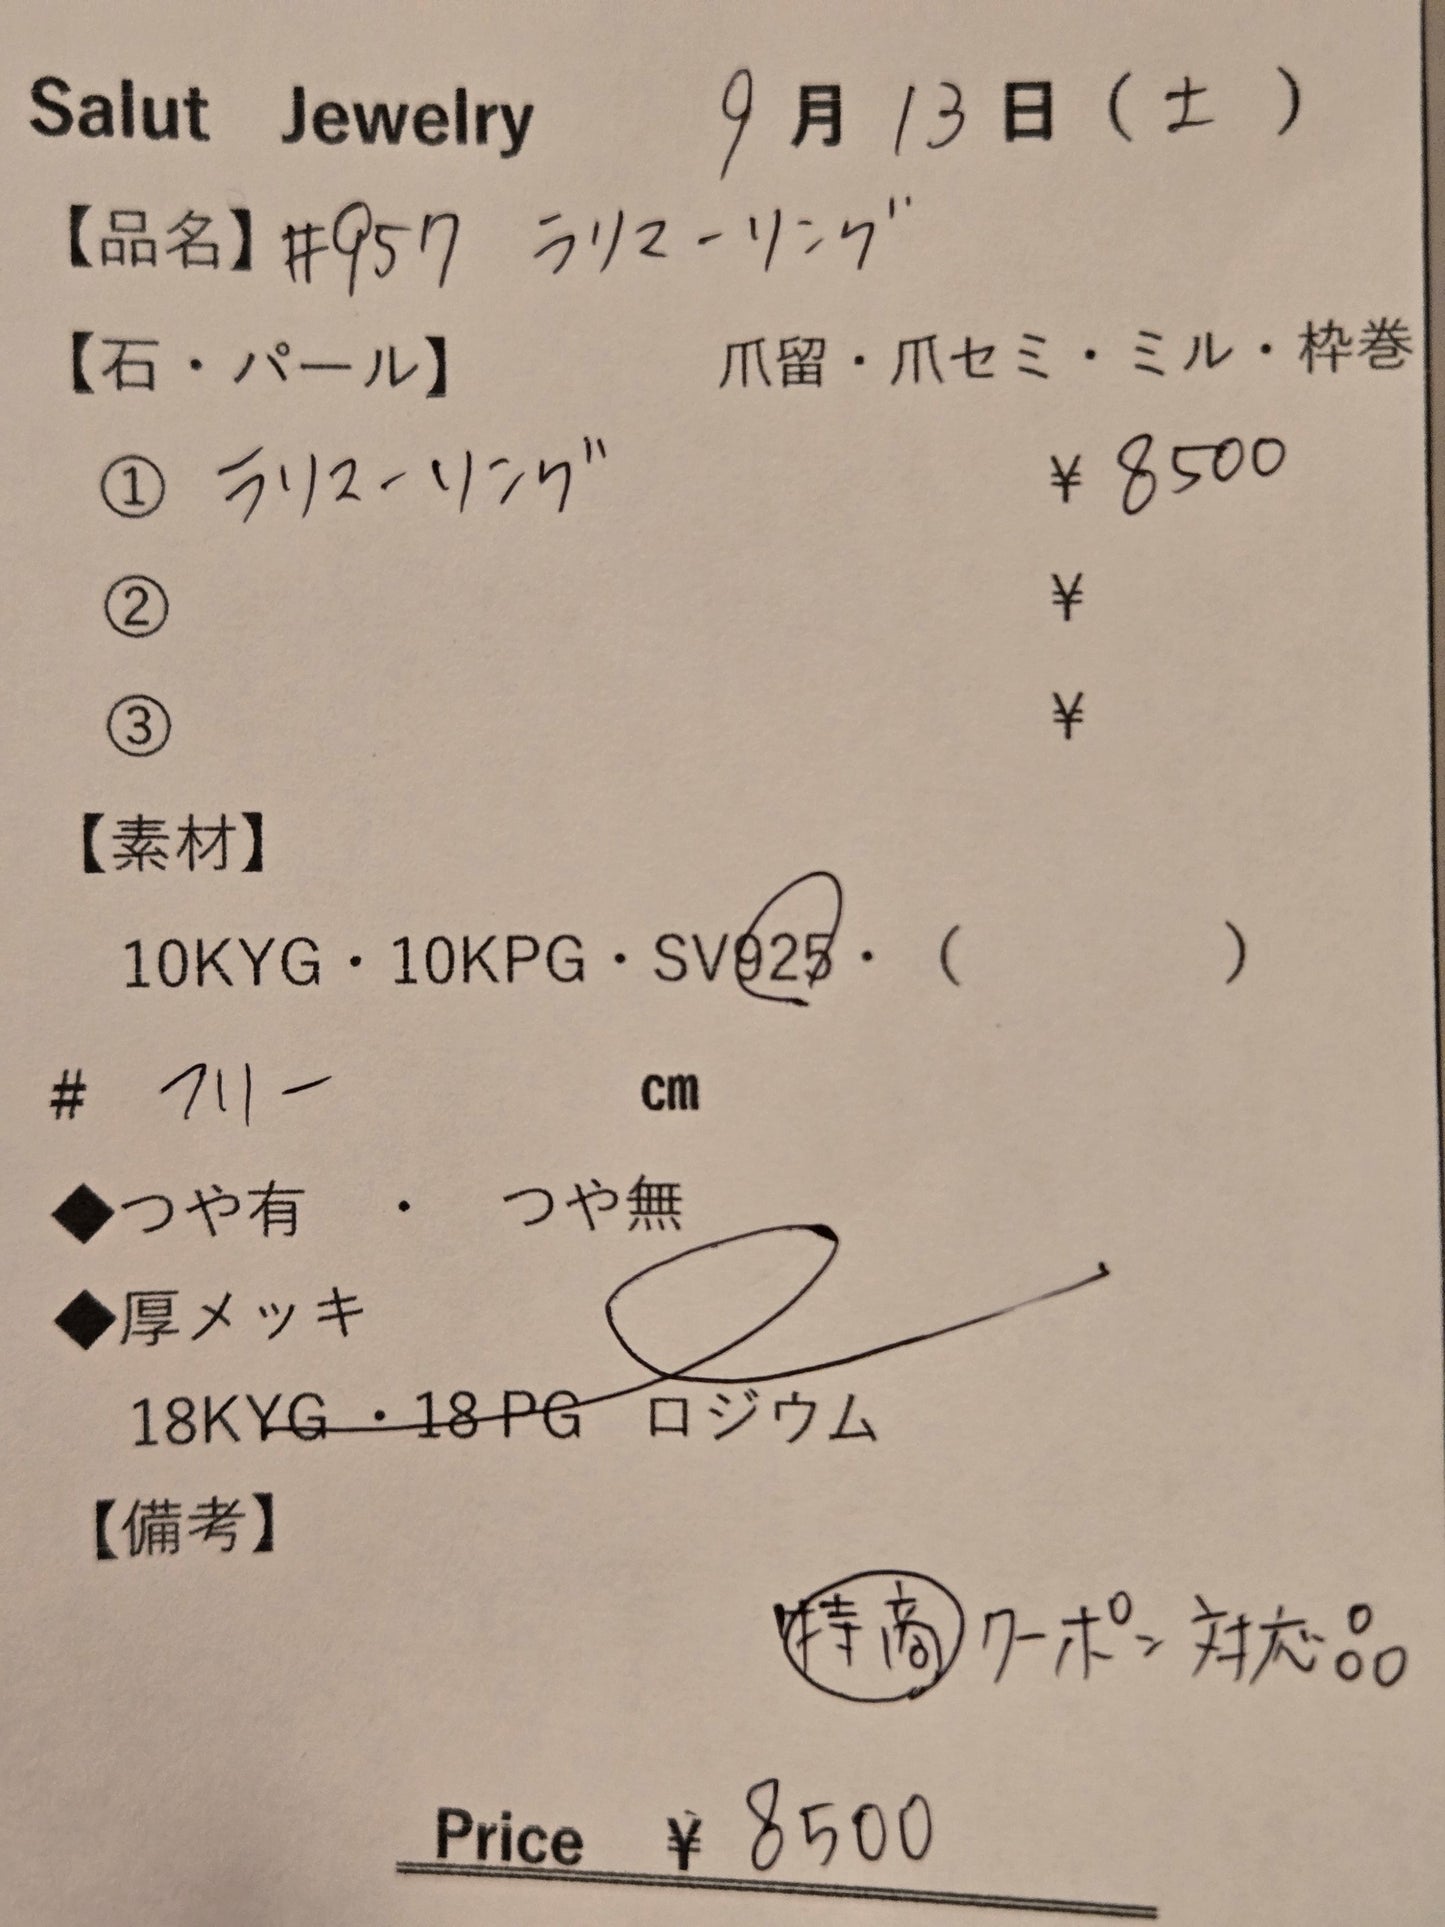 Salut Jewelry 9月13日(土)
【品名】#957 ラリマーリング
【石・パール】 爪留・爪セミ・ミル・枠巻
① ラリマーリング ¥8500
② ¥
③ ¥
【素材】
10KYG・10KPG・SV925・( )
# フリー cm
◆つや有 ・ つや無
◆厚メッキ
18KYG・18PG ロジウム
【備考】
特商 クーポン対応品
Price ¥8500